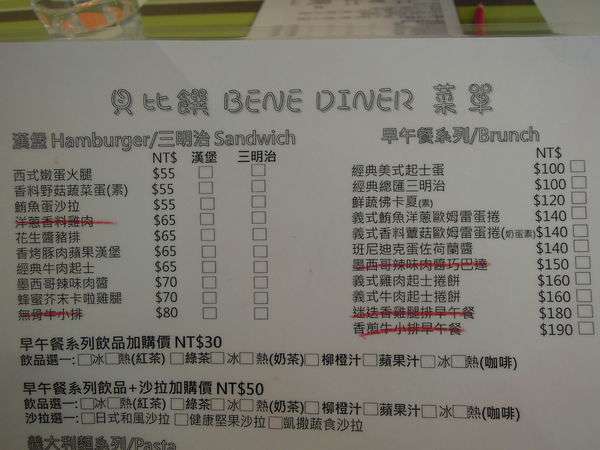 貝比饌 BENE DINER 菜單
漢堡 Hamburger/三明治 Sandwich
NT$ 漢堡 三明治
西式嫩蛋火腿 $55
香料野菇蔬菜蛋(素) $55
鮪魚蛋沙拉 $55
洋蔥香料雞肉 $65
花生醬豬排 $65
香烤豚肉蘋果漢堡 $65
經典牛肉起士 $65
墨西哥辣味肉醬 $70
蜂蜜芥末卡啦雞腿 $70
無骨牛小排 $80
早午餐系列/Brunch
NT$
經典美式起士蛋 $100
經典總匯三明治 $100
鮮蔬佛卡夏(素) $120
義式鮪魚洋蔥歐姆雷蛋捲 $140
義式香料蕈菇歐姆雷蛋捲(奶蛋素) $140
班尼迪克蛋佐荷蘭醬 $140
墨西哥辣味肉醬巧巴達 $150
義式雞肉起士捲餅 $160
義式牛肉起士捲餅 $160
迷迭香雞腿排早午餐 $180
香煎牛小排早午餐 $190
早午餐系列飲品加購價 NT$30
飲品選一:□冰□熱(紅茶) □綠茶□冰□熱(奶茶)□柳橙汁□蘋果汁□冰□熱(咖啡)
早午餐系列飲品+沙拉加購價 NT$50
飲品選一:□冰□熱(紅茶) □綠茶□冰□熱(奶茶)□柳橙汁□蘋果汁□冰□熱(咖啡)
沙拉選一:□日式和風沙拉 □健康堅果沙拉□凱撒蔬食沙拉
義大利麵系列/Pasta